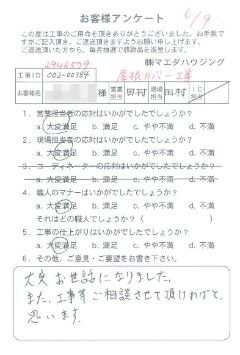 お客様アンケート
6/9
この度は工事のご用命を頂きありがとうございました。お手数で
すがご記入頂き、ご返送頂きますようお願い申し上げます。
ご返送頂いた方から、毎月抽選で感謝品を進呈します。
2946579
㈱マエダハウジング
工事ID 002-00384 屋根カバー工事
お客様名 様 営業担当 田村 現場担当 田村
1．営業担当者の応対はいかがでしたでしょうか？
a. 大変満足 b. 満足 c. やや不満 d. 不満
2．現場担当者の応対はいかがでしたでしょうか？
a. 大変満足 b. 満足 c. やや不満 d. 不満
3．コーディネーターの応対はいかがでしたでしょうか？
a. 大変満足 b. 満足 c. やや不満 d. 不満
4．職人のマナーはいかがでしたでしょうか？
a. 大変満足 b. 満足 c. やや不満 d. 不満
それはどの職人でしょうか？（ ）
5．工事の仕上がりはいかがでしたでしょうか？
a. 大変満足 b. 満足 c. やや不満 d. 不満
6．その他、ご意見・ご要望をお書き下さい。
大変お世話になりました。
また、工事等ご相談させて頂ければと、
思います。